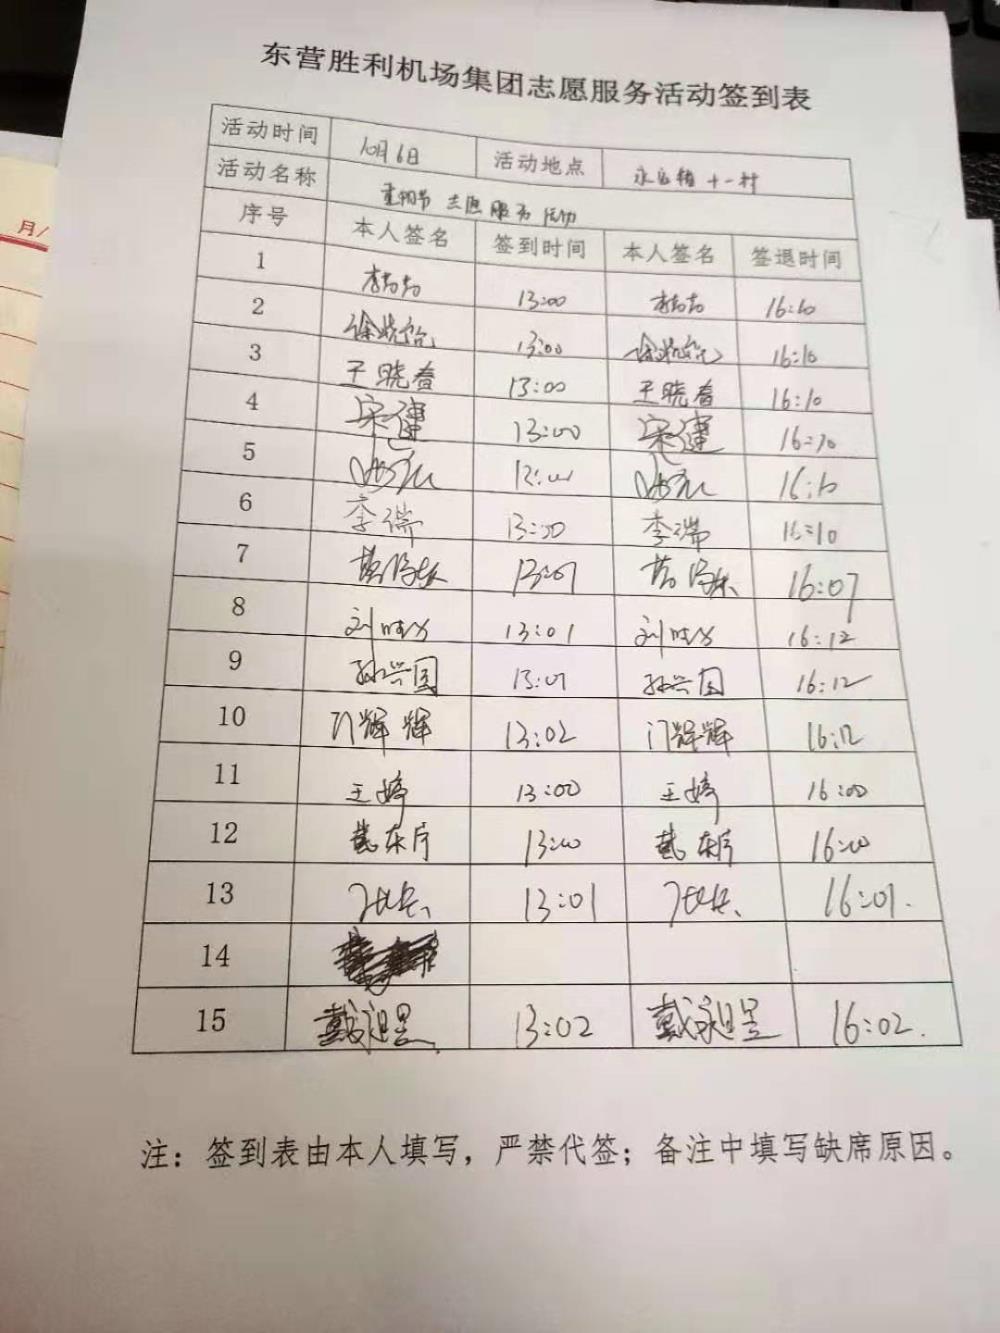 东营胜利机场集团志愿服务活动签到表
活动时间 10月6日 活动地点 永安镇十一村
活动名称 重阳节志愿服务活动
序号 本人签名 签到时间 本人签名 签退时间
1 13:00 16:10
2 13:00 16:10
3 王晓春 13:00 王晓春 16:10
4 宋建 13:00 宋建 16:10
5 16:10
6 李瑞 13:00 李瑞 16:10
7 13:01 16:07
8 13:01 16:12
9 孙兴国 13:01 孙兴国 16:12
10 门辉辉 13:02 门辉辉 16:12
11 王婷 13:00 王婷 16:00
12 13:00 16:00
13 13:01 16:01.
14
15 13:02 16:02.
注：签到表由本人填写，严禁代签；备注中填写缺席原因。
月/